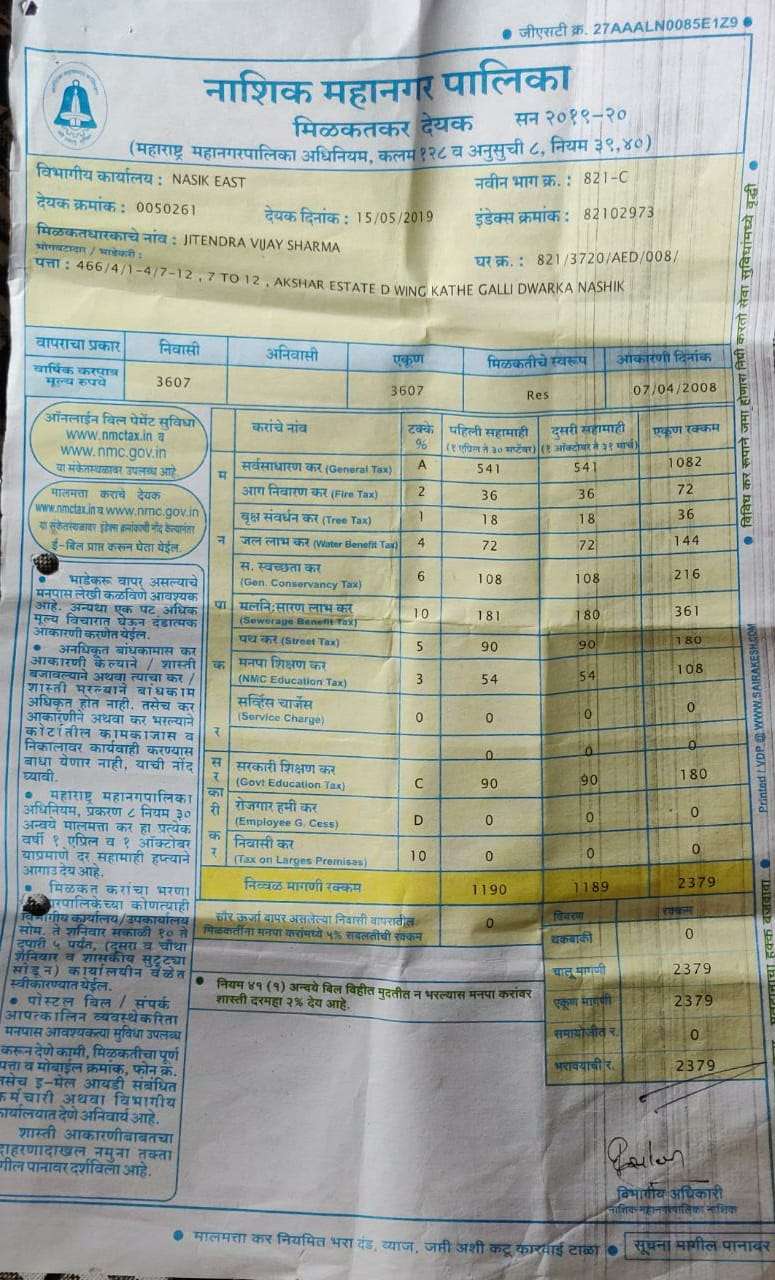 जीएसटी क्र. 27AAALN0085E1Z9
नाशिक महानगर पालिका
मिळकतकर देयक सन २०१९-२०
(महाराष्ट्र महानगरपालिका अधिनियम, कलम १२८ व अनुसुची ८, नियम ३९,४०)
विभागीय कार्यालय : NASIK EAST नवीन भाग क्र. : 821-C
देयक क्रमांक : 0050261 देयक दिनांक : 15/05/2019 इंडेक्स क्रमांक : 82102973
मिळकतधारकाचे नांव : JITENDRA VIJAY SHARMA
भोगवटादार / भाडेकरी : घर क्र. : 821/3720/AED/008/
पत्ता : 466/4/1-4/7-12 , 7 TO 12 , AKSHAR ESTATE D WING KATHE GALLI DWARKA NASHIK
वापराचा प्रकार निवासी अनिवासी एकूण मिळकतीचे स्वरूप आकारणी दिनांक
वार्षिक करपात्र मूल्य रूपये 3607 3607 Res 07/04/2008
ऑनलाईन बिल पेमेंट सुविधा
www.nmctax.in व
www.nmc.gov.in
या संकेतस्थळावर उपलब्ध आहे.
मालमत्ता कराचे देयक
www.nmctax.in व www.nmc.gov.in
या संकेतस्थळावर इंडेक्स क्रमांकाची नोंद केल्यानंतर
ई-बिल प्राप्त करून घेता येईल.
• भाडेकरू वापर असल्याचे
मनपास लेखी कळविणे आवश्यक
आहे. अन्यथा एक पट अधिक
मूल्य विचारात घेऊन दंडात्मक
आकारणी करणेत येईल.
• अनधिकृत बांधकामास कर
आकारणी केल्याने / शास्ती
बजावल्याने अथवा त्याचा कर /
शास्ती भरल्याने बांधकाम
अधिकृत होत नाही. तसेच कर
आकारणीने अथवा कर भरल्याने
कोर्टातील कामकाजास व
निकालावर कार्यवाही करण्यास
बाधा येणार नाही, याची नोंद
घ्यावी.
• महाराष्ट्र महानगरपालिका
अधिनियम, प्रकरण ८ नियम ३०
अन्वये मालमत्ता कर हा प्रत्येक
वर्षी १ एप्रिल व १ ऑक्टोबर
याप्रमाणे दर सहामाही हप्त्याने
आगाउ देय आहे.
• मिळकत कराचा भरणा
पालिकेच्या कोणत्याही
विभागीय कार्यालय/उपकार्यालय
सोम. ते शनिवार सकाळी १० ते
दुपारी ५ पर्यंत, (दुसरा व चौथा
शनिवार व शासकीय सुट्ट्या
सोडून) कार्यालयीन वेळेत
स्वीकारण्यात येईल.
• पोस्टल बिल / संपर्क
आपत्कालिन व्यवस्थेकरिता
मनपास आवश्यक्त्या सुविधा उपलब्ध
करून देणे कामी, मिळकतीचा पूर्ण
पत्ता व मोबाईल क्रमांक, फोन क्र.
तसेच ई-मेल आयडी संबंधित
कर्मचारी अथवा विभागीय
कार्यालयात देणे अनिवार्य आहे.
शास्ती आकारणीबाबतचा
दाहरणादाखल नमुना तक्ता
गील पानावर दर्शविला आहे.
करांचे नांव टक्के % पहिली सहामाही दुसरी सहामाही एकूण रक्कम
(१ एप्रिल ते ३० सप्टेंबर) (१ ऑक्टोबर ते ३१ मार्च)
म न पा क र
सर्वसाधारण कर (General Tax) A 541 541 1082
आग निवारण कर (Fire Tax) 2 36 36 72
वृक्ष संवर्धन कर (Tree Tax) 1 18 18 36
जल लाभ कर (Water Benefit Tax) 4 72 72 144
स. स्वच्छता कर
(Gen. Conservancy Tax) 6 108 108 216
मलनि:सारण लाभ कर
(Sewerage Benefit Tax) 10 181 180 361
पथ कर (Street Tax) 5 90 90 180
मनपा शिक्षण कर
(NMC Education Tax) 3 54 54 108
सर्व्हिस चार्जेस
(Service Charge) 0 0 0 0
0 0 0
स र का री क र
सरकारी शिक्षण कर
(Govt Education Tax) C 90 90 180
रोजगार हमी कर
(Employee G. Cess) D 0 0 0
निवासी कर
(Tax on Larges Premises) 10 0 0 0
निव्वळ मागणी रक्कम 1190 1189 2379
सौर ऊर्जा वापर असलेल्या निवासी वापरातील
मिळकतींना मनपा करांमध्ये ५% सवलतीची रक्कम 0
विवरण रक्कम
थकबाकी 0
चालू मागणी 2379
एकूण मागणी 2379
समायोजीत र. 0
भरावयाची र. 2379
• नियम ४१ (१) अन्वये बिल विहीत मुदतीत न भरल्यास मनपा करांवर
शास्ती दरमहा २% देय आहे.
विभागीय अधिकारी
नाशिक महानगरपालिका नाशिक
• मालमत्ता कर नियमित भरा दंड, व्याज, जप्ती अशी कटू कारवाई टाळा • सूचना मागील पानावर
• विविध कर रूपाने जमा होणारा निधी करतो सेवा सुविधांमध्ये वृद्धी
Printed / VDP @ WWW.SAIRAKESH.COM
हक्क बजवावा •